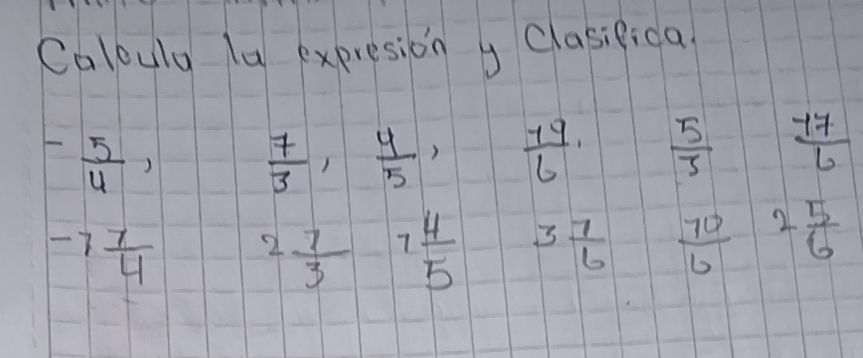 Calcula la expresión y Clasifica.
- 5/4, 7/3, 4/5, 19/6. 5/3 17/6
-1 1/4 2 1/3 1 4/5 3 1/6 10/6 2 5/6